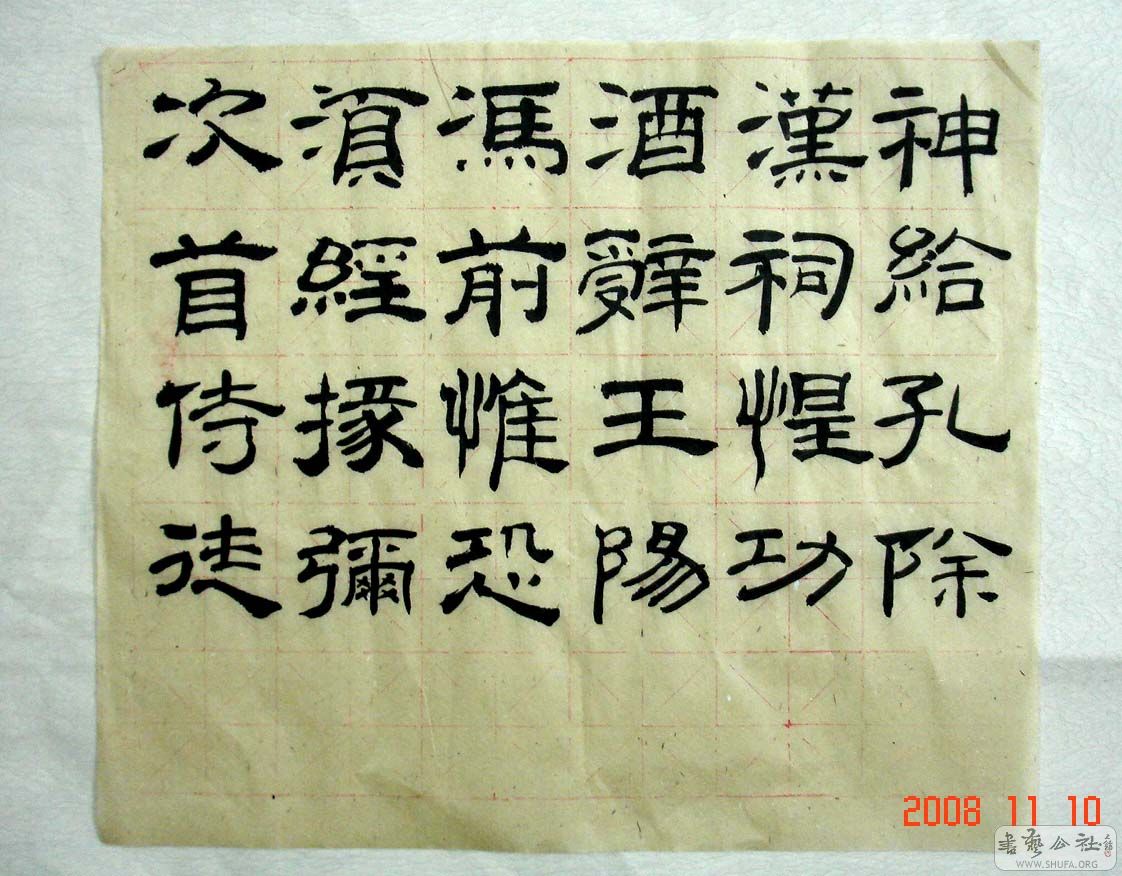 神給孔除
漢祠惶功
酒辤王陽
馮前惟恐
須經掾彌
次首侍徒
2008 11 10
書藝公社
WWW.SHUFA.ORG